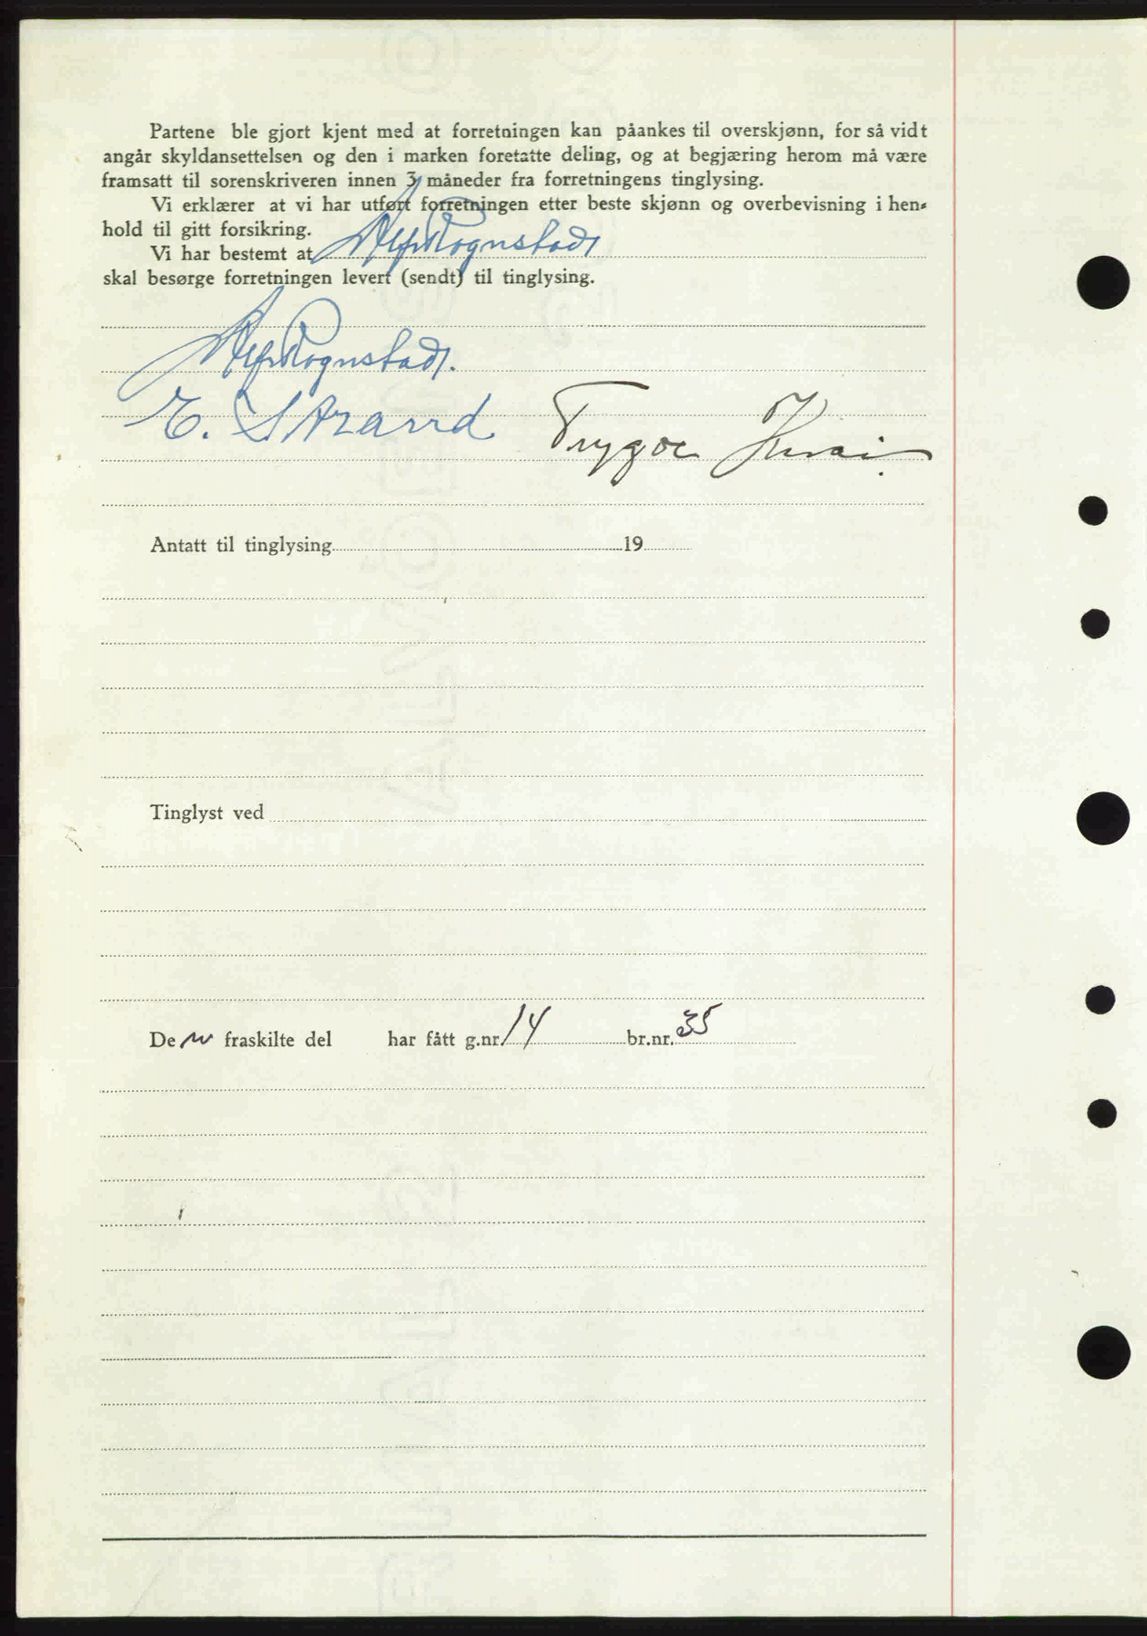 Partene ble gjort kjent med at forretningen kan påankes til overskjønn, for så vidt
angår skyldansettelsen og den i marken foretatte deling, og at begjæring herom må være
framsatt til sorenskriveren innen 3 måneder fra forretningens tinglysing.
Vi erklærer at vi har utført forretningen etter beste skjønn og overbevisning i hen-
hold til gitt forsikring.
Vi har bestemt at Alf Rognstad
skal besørge forretningen levert (sendt) til tinglysing.
Alf Rognstad.
E. Strand Trygve
Antatt til tinglysing 19
Tinglyst ved
Den fraskilte del har fått g.nr. 14 br.nr. 35